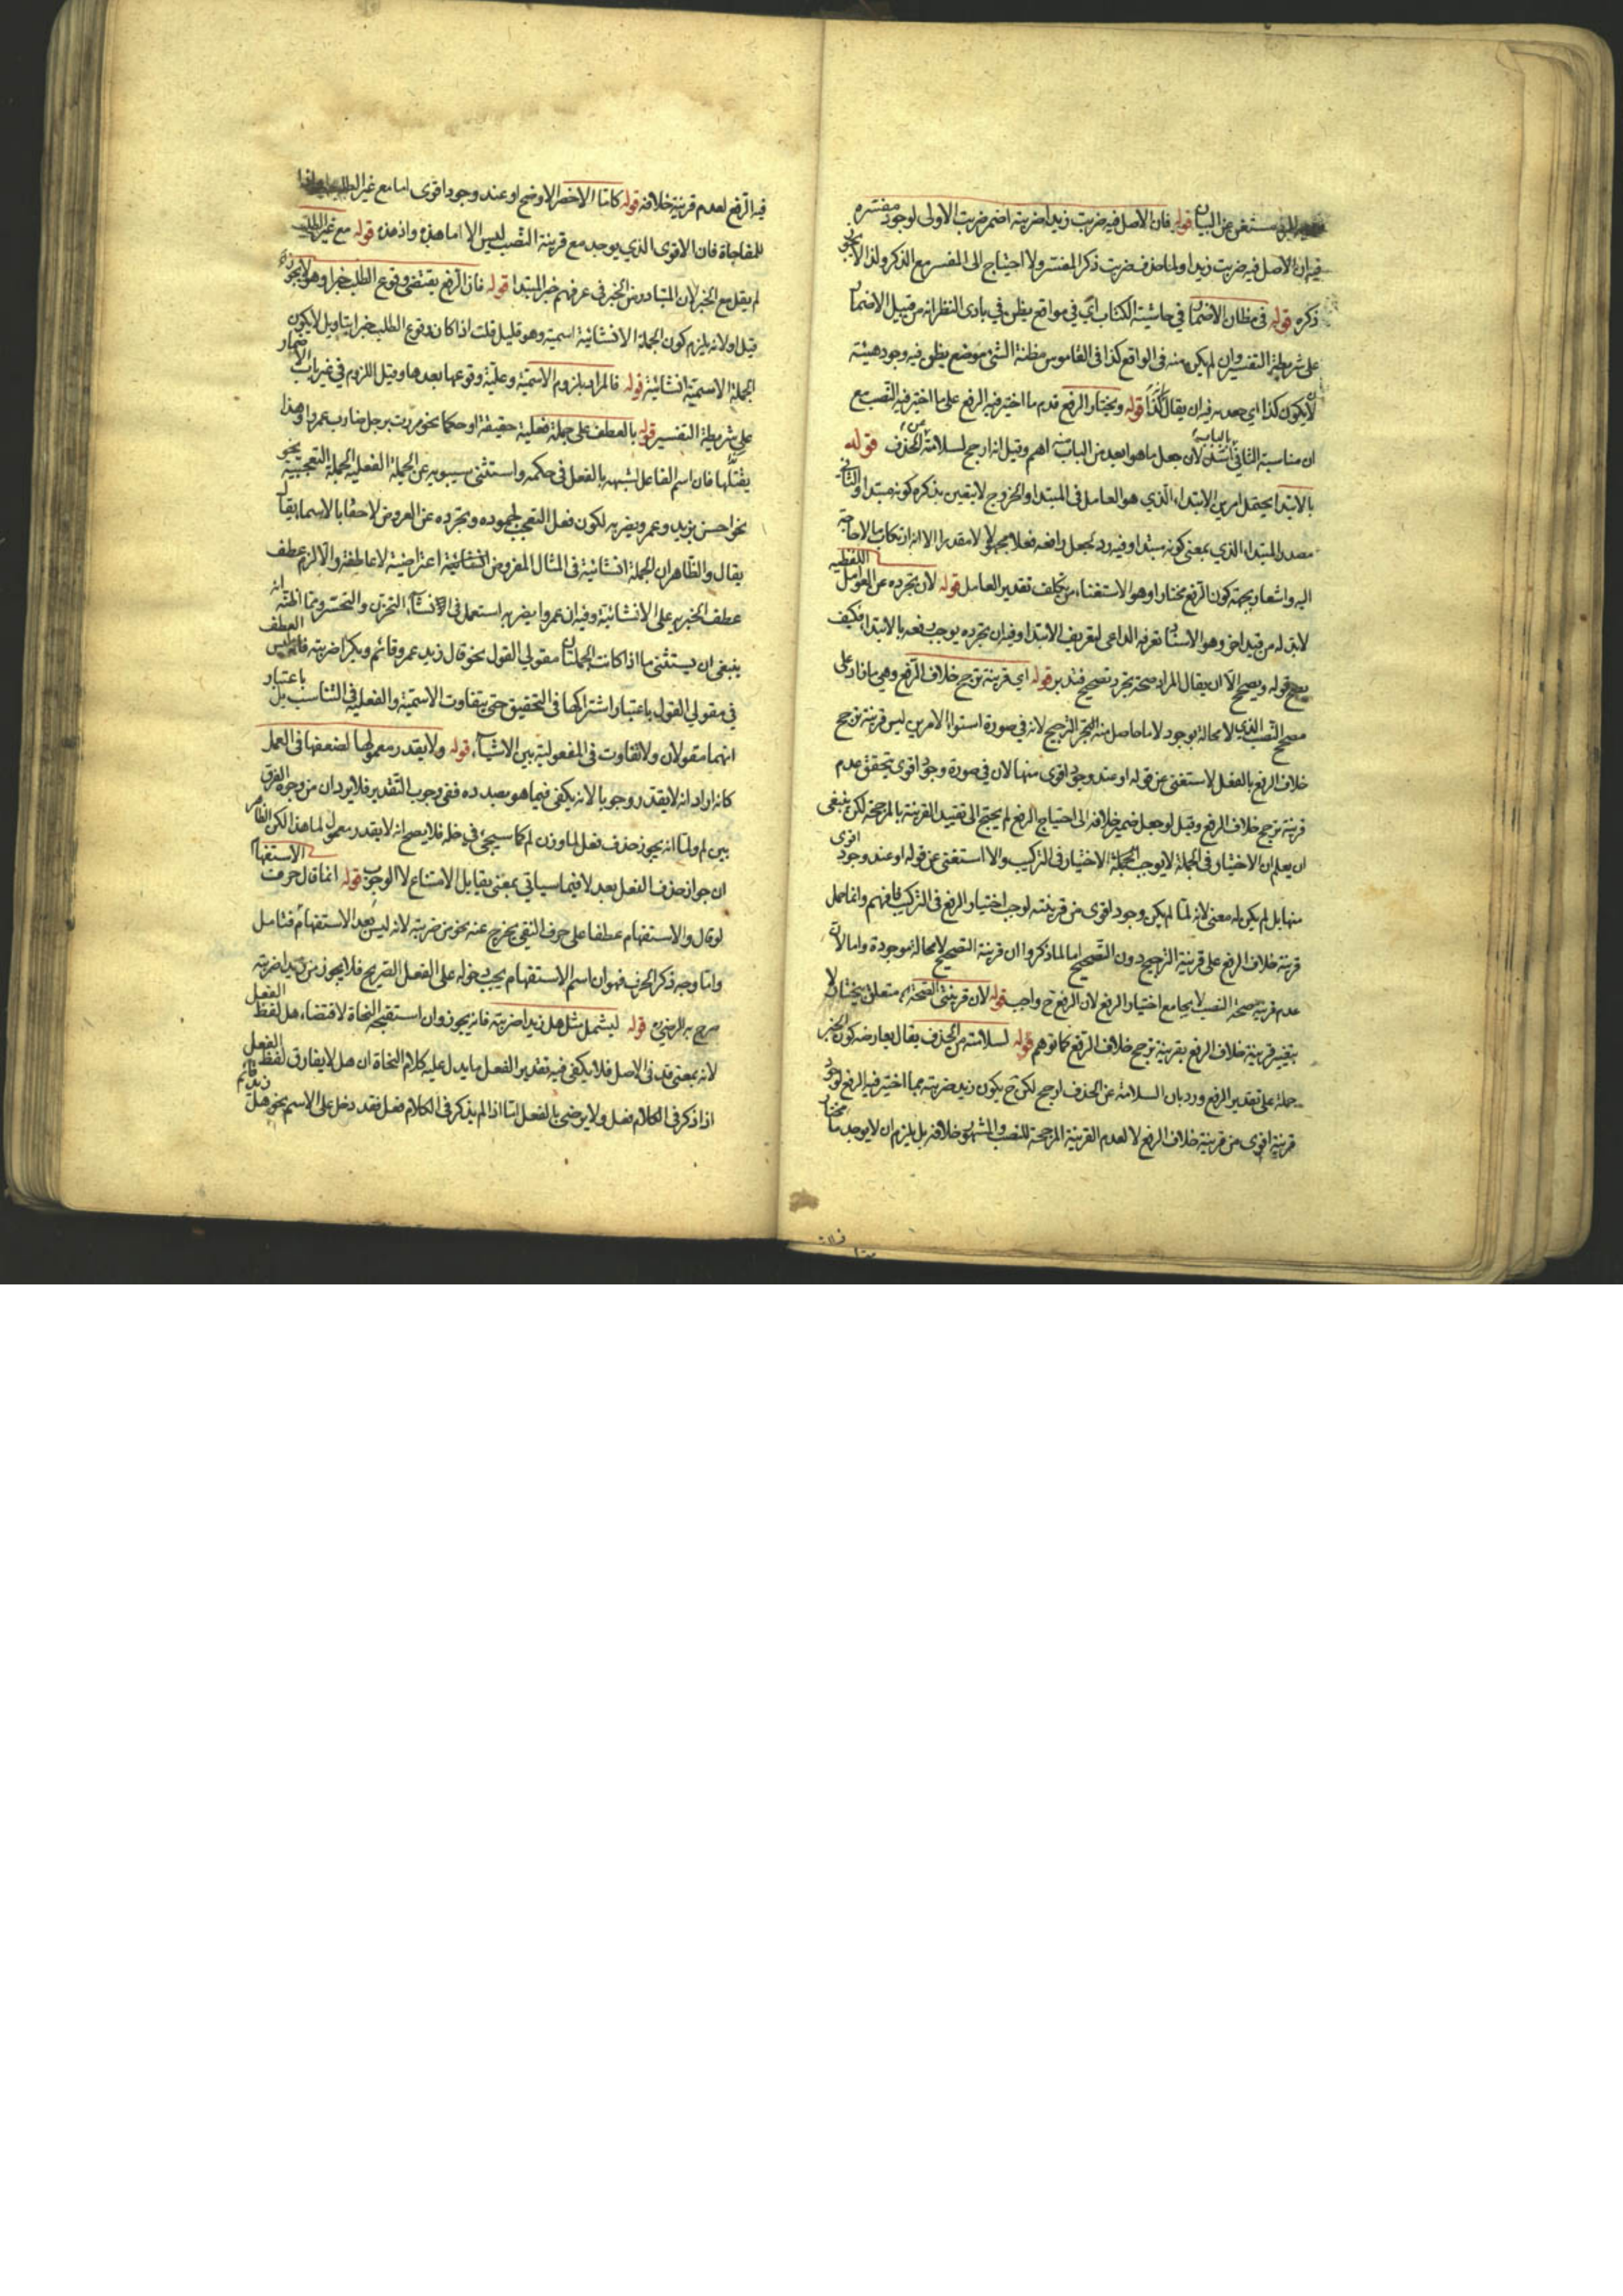 مستغن عن البيان قوله فان الاصل فيه ضربت زيدا ضربته اضمر ضربت الاولى لوجود مفسره
فيه ان الاصل فيه ضربت زيدا ولما حذف ضربت ذكر المفسر ولا احتياج الى المفسر مع الذكر ولذا لا يجوز
ذكره قوله في مظان الاضمار في حاشية الكتاب اي في مواقع يظن في بادي النظر انه من قبيل الاضمار
على شريطة التفسير وان لم يكن منه في الواقع كذا في القاموس مظنة الشئ موضع يظن فيه وجود هيئته
لا يكون كذا اي فيه ان يقال كذا قوله ويختار الرفع قدم ما اختير فيه الرفع على ما اختير فيه النصب مع
ان مناسبة الثاني بالباب اشد لان جعل ما هو ابعد من الباب منه اهم وقيل لانه ارجح لسلامته عن الحذف قوله
بالابتداء يحتمل امرين الابتداء الذي هو العامل في المبتدا والخروج لا يتعين بذكره كونه مبتدا والثاني
مصدر المبتدا الذي بمعنى كونه مبتدا وفيه رد لمجعل رافعه فعلا مجهولا مقدرا الا انه ارتكاب الحاجة
اليه واشعار بجهة كون الرفع مختارا وهو الاستغناء من تكلف تقدير العامل قوله لان تجرده عن العوامل اللفظية
لا بد له من قيد اخر وهو الاسناد تعرفه الداعي لتعريف الابتدا وفيه ان تجرده يوجب رفعه بالابتدا فكيف
يصح قوله ويصحح الا ان يقال المراد صحة تجرد تصحيح فتدبر قوله اي قرينة ترجح خلاف الرفع وهي ما زاد على
مصحح النصب الذي لا محالة يوجد لا ما حاصل منه الترجيح لانه في صورة استواء الامرين ليس قرينة ترجح
خلاف الرفع بالفعل لاستغنى عن قوله او عند وجود اقوى منها لان في صورة وجود اقوى يتحقق عدم
قرينة ترجح خلاف الرفع وقيل لو جعل ضمير خلافه الى احتياج الرفع لم يحتج الى تقييد القرينة بالمرجحة لكن ينبغي
ان يعلم ان الاختيار في الجملة لا يوجب الاختيار في التركيب والا استغنى عن قوله او عند وجود اقوى
منها بل لم يكن له معنى لانه لما لم يكن وجود اقوى من قرينته لوجب اختيار الرفع في التركيب فافهم وانما حمل
قرينة خلاف الرفع على قرينة الترجيح دون التصحيح اما لما ذكروا ان قرينة التصحيح لا محالة موجودة واما لان
عدم قرينة صحة النصب لا يجامع اختيار الرفع لان الرفع ح واجب قوله لان قرينتي الصحة متعلق بيختار لا
بتفسير قرينة خلاف الرفع بقرينة ترجح خلاف الرفع كما توهم قوله لسلامته من الحذف يقال يعارضه كون الخبر
جملة على تقدير الرفع ورد بان السلامة عن الحذف ارجح لكن ح يكون زيد ضربته مما اختير فيه الرفع لوجود
قرينة اقوى من قرينة خلاف الرفع لا لعدم القرينة المرجحة للنصب والمشهور خلافه بل يلزم ان لا يوجد ما يختار
فيه الرفع لعدم قرينة خلافه قوله كاما الاخصر الاوضح او عند وجود اقوى اما مع غير الطلب
للمفاجاة فان الاقوى الذي يوجد مع قرينة النصب ليس الا اما هذه واذ هذه قوله مع غير الطلب
لم يقل مع الخبر لان المتبادر من الخبر في عرفهم خبر المبتدا قوله فان الرفع يقتضي وقوع الطلب خبرا وهو لا يجوز
قيل اولا نه يلزم كون الجملة الانشائية اسمية وهو قليل قلت اذا كان وقوع الطلب خبرا بتاويل لا يكون
الجملة الاسمية انشائية قوله فالمراد بلزوم الاسمية وغلبة وقوعها بعدها وقيل اللزوم في غير باب الاضمار
على شريطة التفسير قوله بالعطف على جملة فعلية حقيقة او حكما نحو مررت برجل ضارب عمروا وهذا
يقتلها فان اسم الفاعل لشبهه بالفعل في حكمه واستثنى سيبويه عن الجملة الفعلية الجملة التعجبية نحو
نحو احسن بزيد وعمرو يضربه لكون فعل التعجب لجموده وتجرده عن العروض لاحقا بالاسما بقا
يقال والظاهر ان الجملة انشائية في المثال المفروض اعتراضية لا عاطفة والا لزم عطف
عطف الخبريه على الانشائية وفيه ان عمروا يضربه استعمل في الانشاء التحزن والتحسر ومما اظنه انه
ينبغي ان يستثنى ما اذا كانت الجملتان مقولي القول نحو قال زيد عمرو قائم وبكرا ضربته فان العطف ليس
في مقولي القول باعتبار اشتراكها في التحقيق حتى يتفاوت الاسمية والفعلية في التناسب بل باعتبار
انهما مقولان ولا تفاوت في المفعولية بين الاشياء قوله ولا يقدر معمولها لضعفها في العمل
كانه اراد انه لا يقدر وجوبا لانه يكفي فيما هو بصدده ففي وجوب التقدير فلا يرد ان من وجوه الفرق
بين لم ولما انه يجوز حذف فعل لما دون لم كما سيجئ في محله فلا يصح انه لا يقدر معمول لما هذا لكن الظاهر
ان جواز حذف الفعل بعد لا فيما سياتي بمعنى يقابل الامتناع لا الوجوب قوله انما قال حرف الاستفهام
لو قال والاستفهام عطفا على حرف النفي يخرج عنه نحو من ضربته لانه ليس بعد الاستفهام فتامل
واما وجه ذكر الحرف فهو ان اسم الاستفهام يجب دخوله على الفعل الصريح فلا يجوز من زيدا ضربته
صرح به الرضي رح قوله ليشمل مثل هل زيدا ضربته فانه يجوز وان استقبحه النحاة لاقتضاء هل لفظ الفعل
لانه بمعنى قد في الاصل فلا يكفي فيه تقدير الفعل ما يدل عليه كلام النحاة ان هل لا يفارق لفظ الفعل
اذا ذكر في الكلام فعل ولا يرضى بالفعل اما اذا لم يذكر في الكلام فعل فقد دخل على الاسم نحو هل زيد قائم